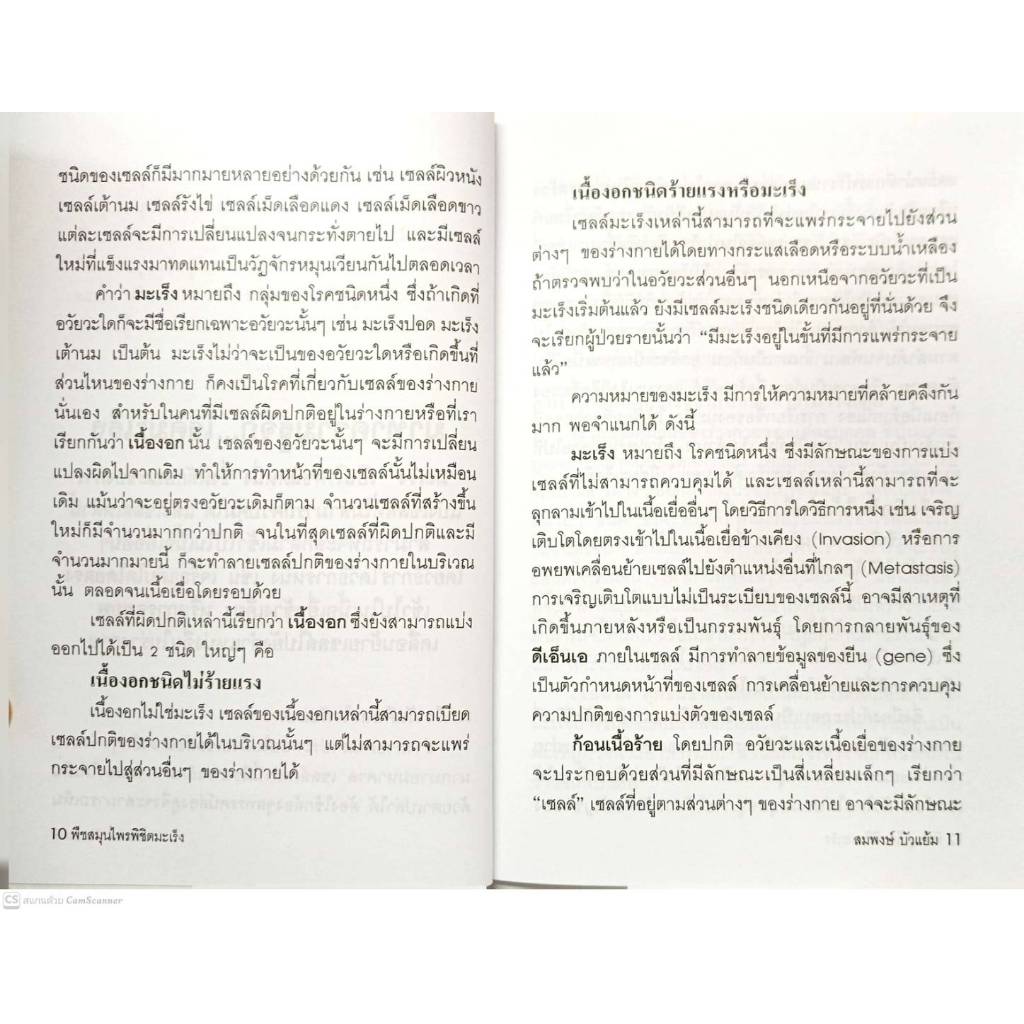 ชนิดของเซลล์ก็มีมากมายหลายอย่างด้วยกัน เช่น เซลล์ผิวหนัง
เซลล์เต้านม เซลล์รังไข่ เซลล์เม็ดเลือดแดง เซลล์เม็ดเลือดขาว
แต่ละเซลล์จะมีการเปลี่ยนแปลงจนกระทั่งตายไป และมีเซลล์
ใหม่ที่แข็งแรงมาทดแทนเป็นวัฏจักรหมุนเวียนกันไปตลอดเวลา
คำว่า มะเร็ง หมายถึง กลุ่มของโรคชนิดหนึ่ง ซึ่งถ้าเกิดที่
อวัยวะใดก็จะมีชื่อเรียกเฉพาะอวัยวะนั้นๆ เช่น มะเร็งปอด มะเร็ง
เต้านม เป็นต้น มะเร็งไม่ว่าจะเป็นของอวัยวะใดหรือเกิดขึ้นที่
ส่วนไหนของร่างกาย ก็คงเป็นโรคที่เกี่ยวกับเซลล์ของร่างกาย
นั่นเอง สำหรับในคนที่มีเซลล์ผิดปกติอยู่ในร่างกายหรือที่เรา
เรียกกันว่า เนื้องอก นั้น เซลล์ของอวัยวะนั้นๆ จะมีการเปลี่ยน
แปลงผิดไปจากเดิม ทำให้การทำหน้าที่ของเซลล์นั้นไม่เหมือน
เดิม แม้นว่าจะอยู่ตรงอวัยวะเดิมก็ตาม จำนวนเซลล์ที่สร้างขึ้น
ใหม่ก็มีจำนวนมากกว่าปกติ จนในที่สุดเซลล์ที่ผิดปกติและมี
จำนวนมากมายนี้ ก็จะทำลายเซลล์ปกติของร่างกายในบริเวณ
นั้น ตลอดจนเนื้อเยื่อโดยรอบด้วย
เซลล์ที่ผิดปกติเหล่านี้เรียกว่า เนื้องอก ซึ่งยังสามารถแบ่ง
ออกไปได้เป็น 2 ชนิด ใหญ่ๆ คือ
เนื้องอกชนิดไม่ร้ายแรง
เนื้องอกไม่ใช่มะเร็ง เซลล์ของเนื้องอกเหล่านี้สามารถเบียด
เซลล์ปกติของร่างกายได้ในบริเวณนั้นๆ แต่ไม่สามารถจะแพร่
กระจายไปสู่ส่วนอื่นๆ ของร่างกายได้
10 พืชสมุนไพรพิชิตมะเร็ง
เนื้องอกชนิดร้ายแรงหรือมะเร็ง
เซลล์มะเร็งเหล่านี้สามารถที่จะแพร่กระจายไปยังส่วน
ต่างๆ ของร่างกายได้โดยทางกระแสเลือดหรือระบบน้ำเหลือง
ถ้าตรวจพบว่าในอวัยวะส่วนอื่นๆ นอกเหนือจากอวัยวะที่เป็น
มะเร็งเริ่มต้นแล้ว ยังมีเซลล์มะเร็งชนิดเดียวกันอยู่ที่นั่นด้วย จึง
จะเรียกผู้ป่วยรายนั้นว่า “มีมะเร็งอยู่ในขั้นที่มีการแพร่กระจาย
แล้ว”
ความหมายของมะเร็ง มีการให้ความหมายที่คล้ายคลึงกัน
มาก พอจำแนกได้ ดังนี้
มะเร็ง หมายถึง โรคชนิดหนึ่ง ซึ่งมีลักษณะของการแบ่ง
เซลล์ที่ไม่สามารถควบคุมได้ และเซลล์เหล่านี้สามารถที่จะ
ลุกลามเข้าไปในเนื้อเยื่ออื่นๆ โดยวิธีการใดวิธีการหนึ่ง เช่น เจริญ
เติบโตโดยตรงเข้าไปในเนื้อเยื่อข้างเคียง (Invasion) หรือการ
อพยพเคลื่อนย้ายเซลล์ไปยังตำแหน่งอื่นที่ไกลๆ (Metastasis)
การเจริญเติบโตแบบไม่เป็นระเบียบของเซลล์นี้ อาจมีสาเหตุที่
เกิดขึ้นภายหลังหรือเป็นกรรมพันธุ์ โดยการกลายพันธุ์ของ
ดีเอ็นเอ ภายในเซลล์ มีการทำลายข้อมูลของยีน (gene) ซึ่ง
เป็นตัวกำหนดหน้าที่ของเซลล์ การเคลื่อนย้ายและการควบคุม
ความปกติของการแบ่งตัวของเซลล์
ก้อนเนื้อร้าย โดยปกติ อวัยวะและเนื้อเยื่อของร่างกาย
จะประกอบด้วยส่วนที่มีลักษณะเป็นสี่เหลี่ยมเล็กๆ เรียกว่า
“เซลล์” เซลล์ที่อยู่ตามส่วนต่างๆ ของร่างกาย อาจจะมีลักษณะ
สมพงษ์ บัวแย้ม 11
CS สแกนด้วย CamScanner